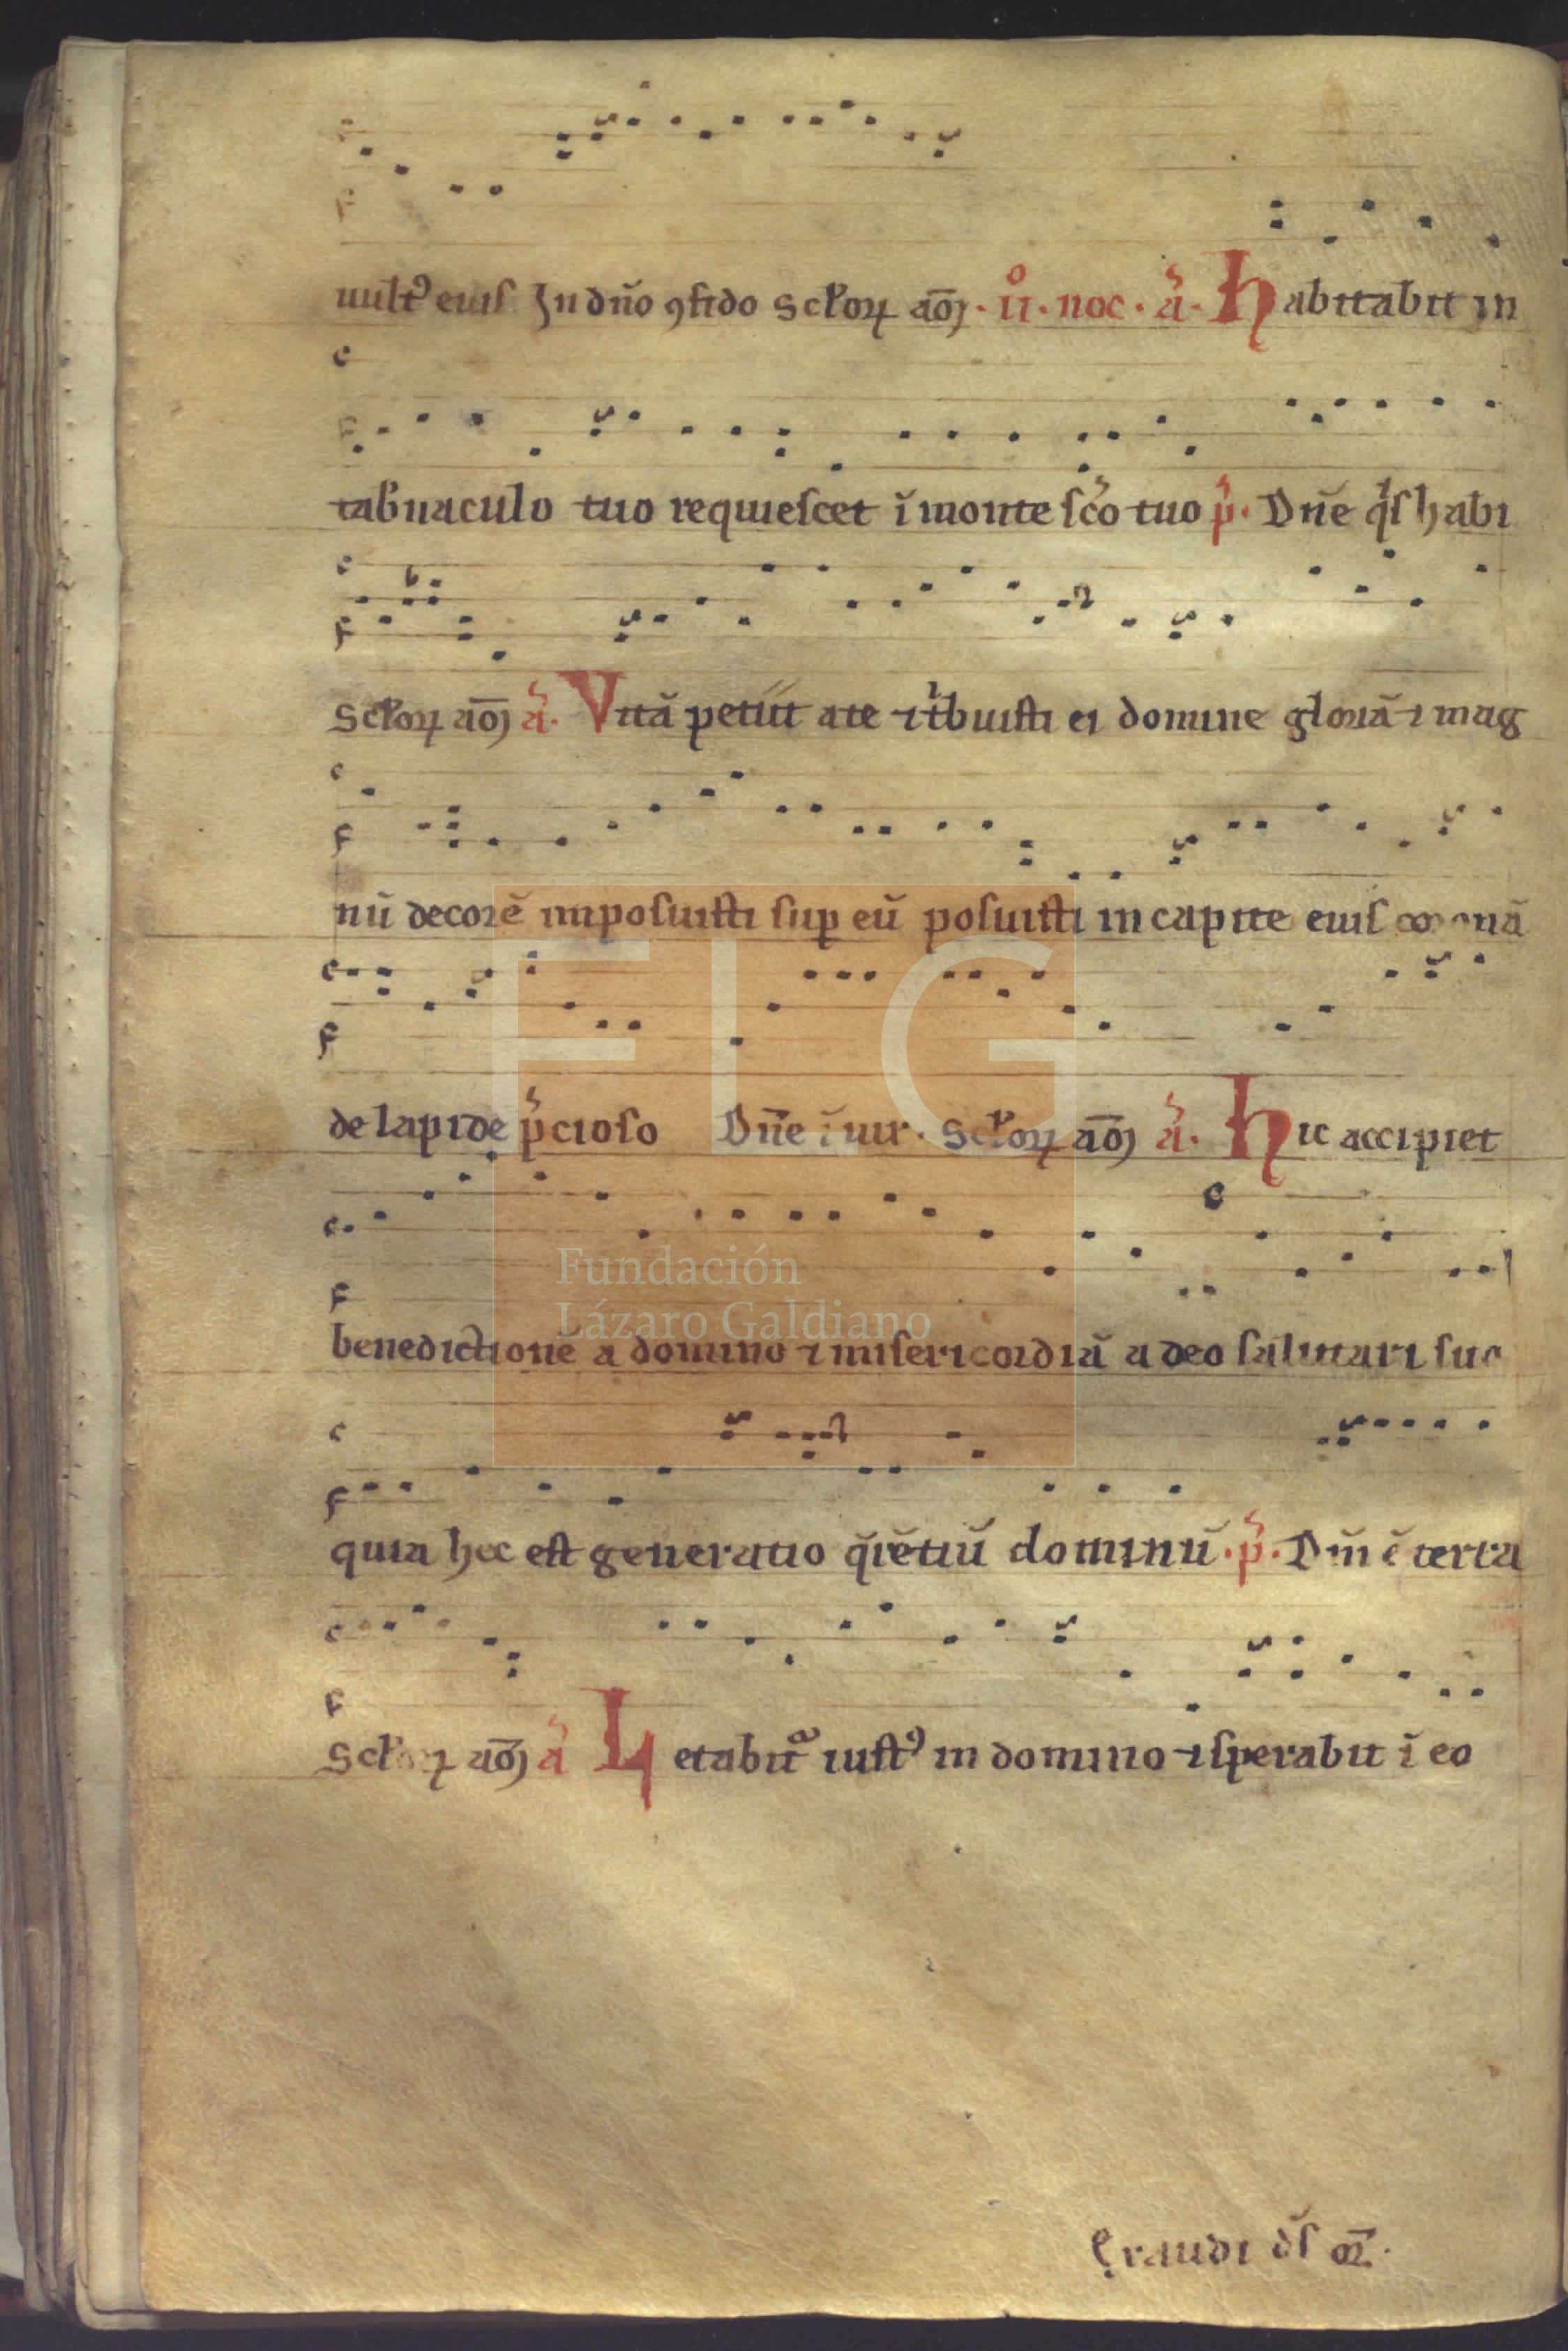 uult᷒ eius In dño ꝯfido Scłoꝝ am̄ · ii° · noc · aᷓ · Habitabit in
tab̕naculo tuo requiescet ĩ monte sc̃o tuo p᷒ · Dñe qͥs habi
Scłoꝝ am̄ aᷓ · Vitã petiit a te ⁊ tͥbuisti ei domine gloriã ⁊ mag
nũ decorẽ imposuisti suꝑ eũ posuisti in capite eius coronã
de lapide p̃cioso Dñe ĩ uir · Scłoꝝ am̄ aᷓ · Hic accipiet
benedictionẽ a domino ⁊ misericordiã a deo salutari suo
quia hec est generatio q̃rẽtiũ dominũ · p᷒ · Dñi ẽ terra
Scłoꝝ am̄ aᷓ Letabit᷑ iust᷒ in domino ⁊ sperabit ĩ eo
Exaudi d̃s or̃ ·
FLG
Fundación
Lázaro Galdiano